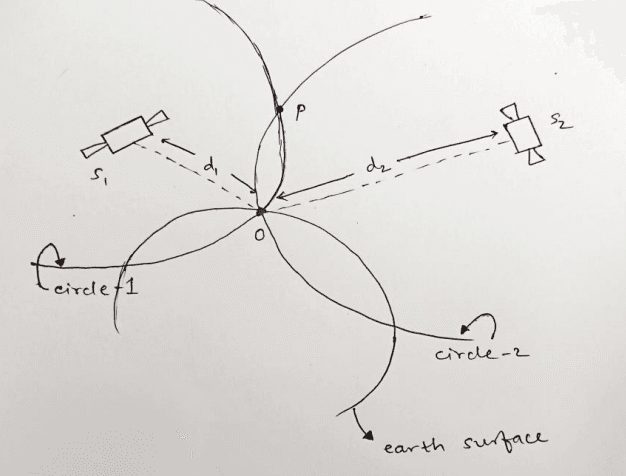 P
S2
S1
d1
d2
O
circle-1
circle-2
earth surface